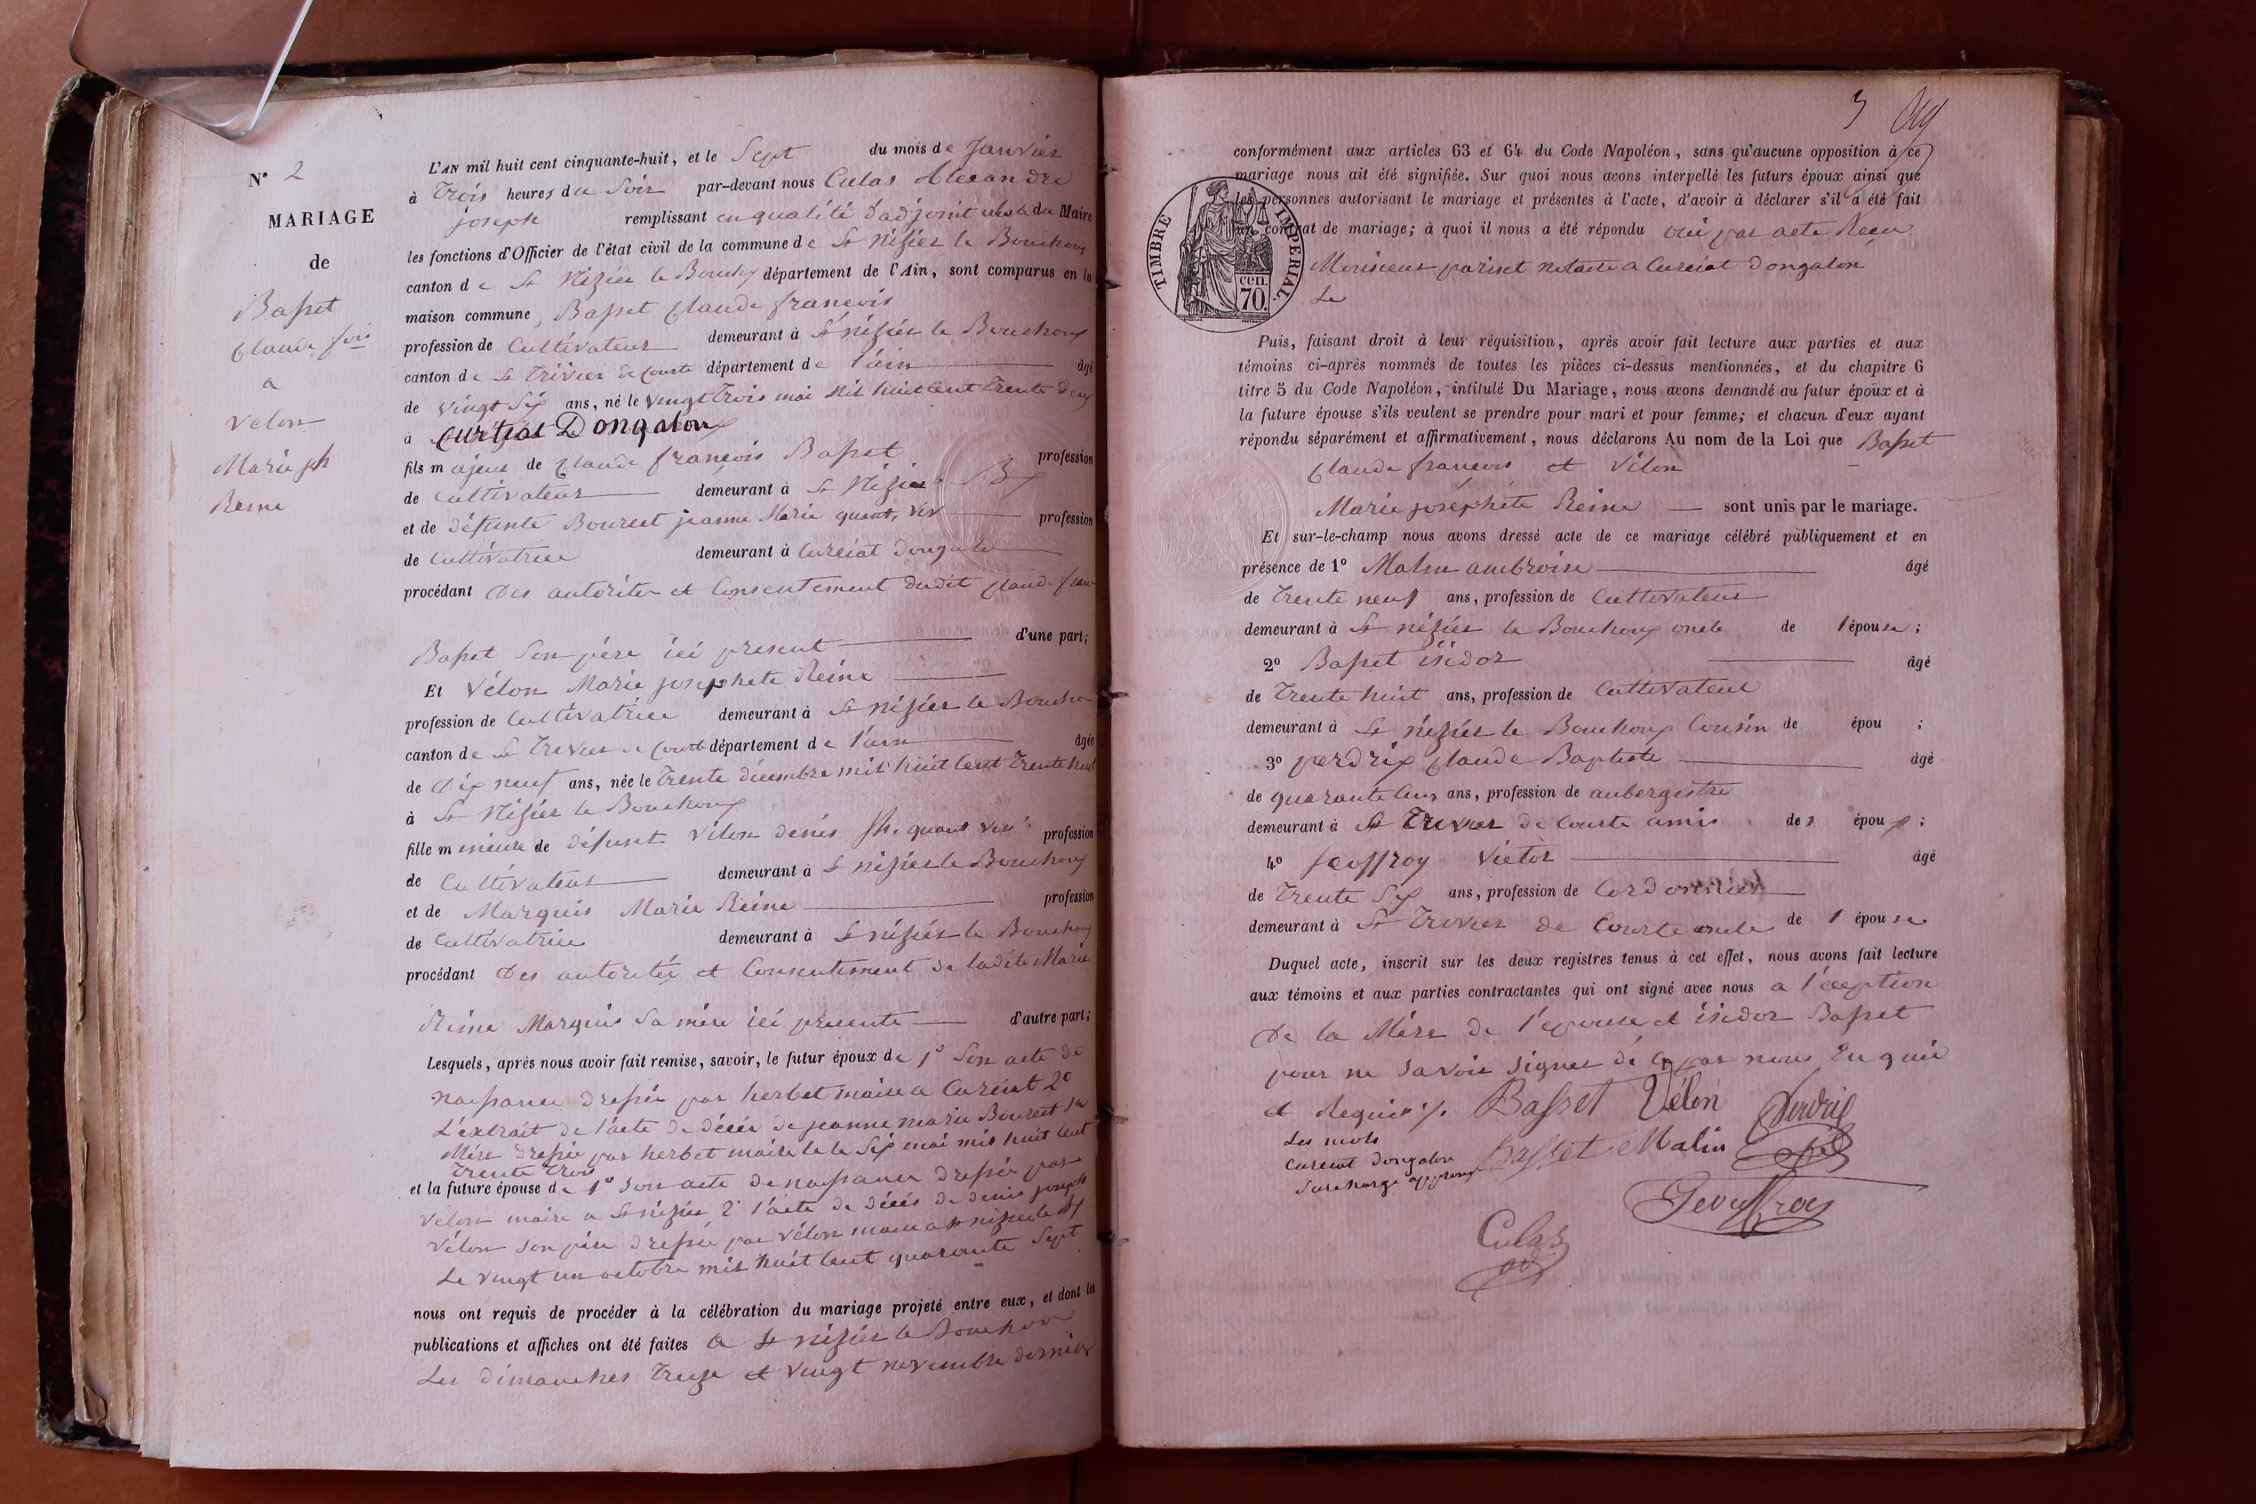 N° 2
MARIAGE
de
Basset
Claude fois
a
Velon
Marie jph
Reine
L'AN mil huit cent cinquante-huit, et le Sept du mois de Janvier
à Trois heures du Soir par-devant nous Culas Alexandre
joseph remplissant en qualité d'adjoint du Maire
les fonctions d'Officier de l'état civil de la commune de St Nizier le Bouchoux
canton de St Nizier le Bouchoux département de l'Ain, sont comparus en la
maison commune, Basset Claude francois
profession de Cultivateur demeurant à St nizier le Bouchoux
canton de St Trivier de Courte département de l'ain âgé
de vingt Six ans, né le vingt Trois mai mil huit Cent Trente deux
à Curtiat Dongalon
fils majeur de Claude francois Basset profession
de Cultivateur demeurant à St Nizier le Bx
et de défunte Bourcet jeanne Marie quant, viv profession
de Cultivatrice demeurant à Curciat dongalo
procédant des autorités et Consentement dudit Claude fran
Basset Son père ici present d'une part;
Et Vélon Marie josephete Reine
profession de Cultivatrice demeurant à St nizier le Bouchou
canton de St Trivier de Courte département de l'ain âgée
de Dix neuf ans, née le Trente décembre mil huit Cent Trente huit
à St Nizier le Bouchoux
fille mineure de défunt Vélon denis jh. quant viv profession
de Cultivateur demeurant à St nizier le Bouchoux
et de Marquis Marie Reine profession
de Cultivatrice demeurant à St nizier le Bouchoux
procédant des autorités et Consentement de ladite Marie
Reine Marquis Sa mère ici presente d'autre part;
Lesquels, après nous avoir fait remise, savoir, le futur époux de 1° Son acte de
naissance dressée par herbet maire a Curciat 2°
L'extrait de l'acte de décès de jeanne marie Bourcet sa
Mère dressée par herbet maire le Six mai mil huit Cent
Trente Trois
et la future épouse de 1° son acte de naissance dressée par
Vélon maire a St nizier 2° l'acte de décès de denis joseph
Vélon son père dressée par Vélon maire a St nizier le Bx
Le vingt un octobre mil huit Cent quarante Sept
nous ont requis de procéder à la célébration du mariage projeté entre eux, et dont les
publications et affiches ont été faites a St nizier le Bouchoux
Les dimanches Treize et vingt novembre dernier
3
conformément aux articles 63 et 64 du Code Napoléon, sans qu'aucune opposition à ce
mariage nous ait été signifiée. Sur quoi nous avons interpellé les futurs époux ainsi que
les personnes autorisant le mariage et présentes à l'acte, d'avoir à déclarer s'il a été fait
un contrat de mariage; à quoi il nous a été répondu oui par acte Reçu
Monsieur pariset notaire a Curciat Dongalon
Le
TIMBRE IMPÉRIAL.
cen.
70.
Puis, faisant droit à leur réquisition, après avoir fait lecture aux parties et aux
témoins ci-après nommés de toutes les pièces ci-dessus mentionnées, et du chapitre 6
titre 5 du Code Napoléon, intitulé Du Mariage, nous avons demandé au futur époux et à
la future épouse s'ils veulent se prendre pour mari et pour femme; et chacun d'eux ayant
répondu séparément et affirmativement, nous déclarons Au nom de la Loi que Basset
Claude francois et Vélon
Marie joséphete Reine sont unis par le mariage.
Et sur-le-champ nous avons dressé acte de ce mariage célébré publiquement et en
présence de 1° Malin ambroise âgé
de Trente neuf ans, profession de Cultivateur
demeurant à St nizier le Bouchoux oncle de l'épouse;
2° Basset isidor âgé
de Trente huit ans, profession de Cultivateur
demeurant à St nizier le Bouchoux Cousin de épou ;
3° perdrix Claude Baptiste âgé
de quarante Cinq ans, profession de aubergistre
demeurant à St Trivier de Courte amis des époux;
4° Jeoffroy Victor âgé
de Trente Six ans, profession de Cordonnier
demeurant à St Trivier de Courte oncle de l'épouse
Duquel acte, inscrit sur les deux registres tenus à cet effet, nous avons fait lecture
aux témoins et aux parties contractantes qui ont signé avec nous a l'éception
De la Mère de l'épouse et isidor Basset
pour ne savoir signer de ce par nous Enquis
et Requis ./.
Basset Vélon Perdrix
Les mots
Curciat Dongalon
Surcharge approuvé
Basset Malin
Geouffroy
Culas
ad